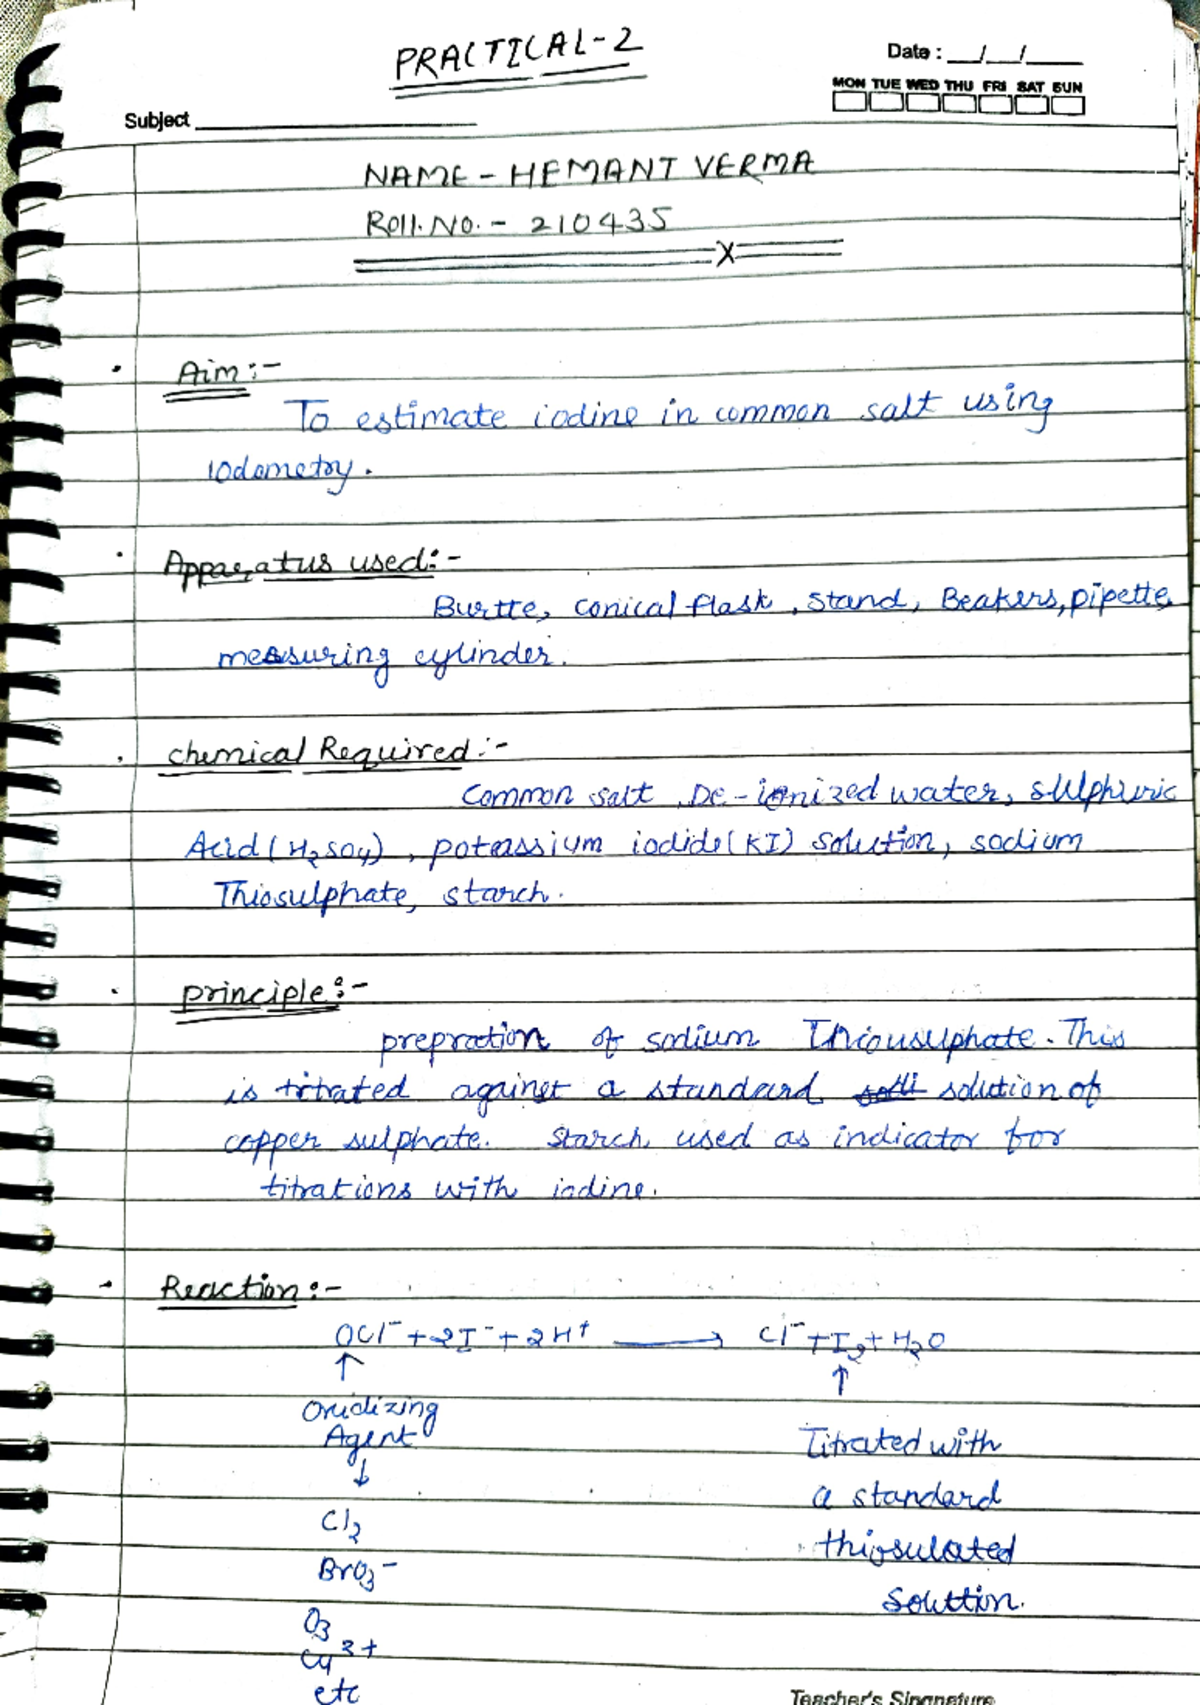 PRACTICAL-2
Date : __/__/____
MON TUE WED THU FRI SAT SUN
Subject
NAME - HEMANT VERMA
Roll.No. - 210435
X
Aim:-
To estimate iodine in common salt using
iodometry.
Apparatus used:-
Burtte, conical flask, stand, Beakers, pipette,
measuring cylinder.
chemical Required:-
Common salt, De-ionized water, sulphuric
Acid (H₂SO₄), potassium iodide (KI) solution, sodium
Thiosulphate, starch.
principle:-
prepration of sodium Thiousulphate. This
is titrated against a standard solution of
copper sulphate. Starch used as indicator for
titrations with iodine.
Reaction:-
OCl⁻ + 2I⁻ + 2H⁺ → Cl⁻ + I₂ + H₂O
↑ ↑
Oxidizing
Agent Titrated with
↓
a standard
Cl₂
thiosulated
BrO₃⁻
Solution.
O₃
Cu²⁺
etc
Teacher's Signature